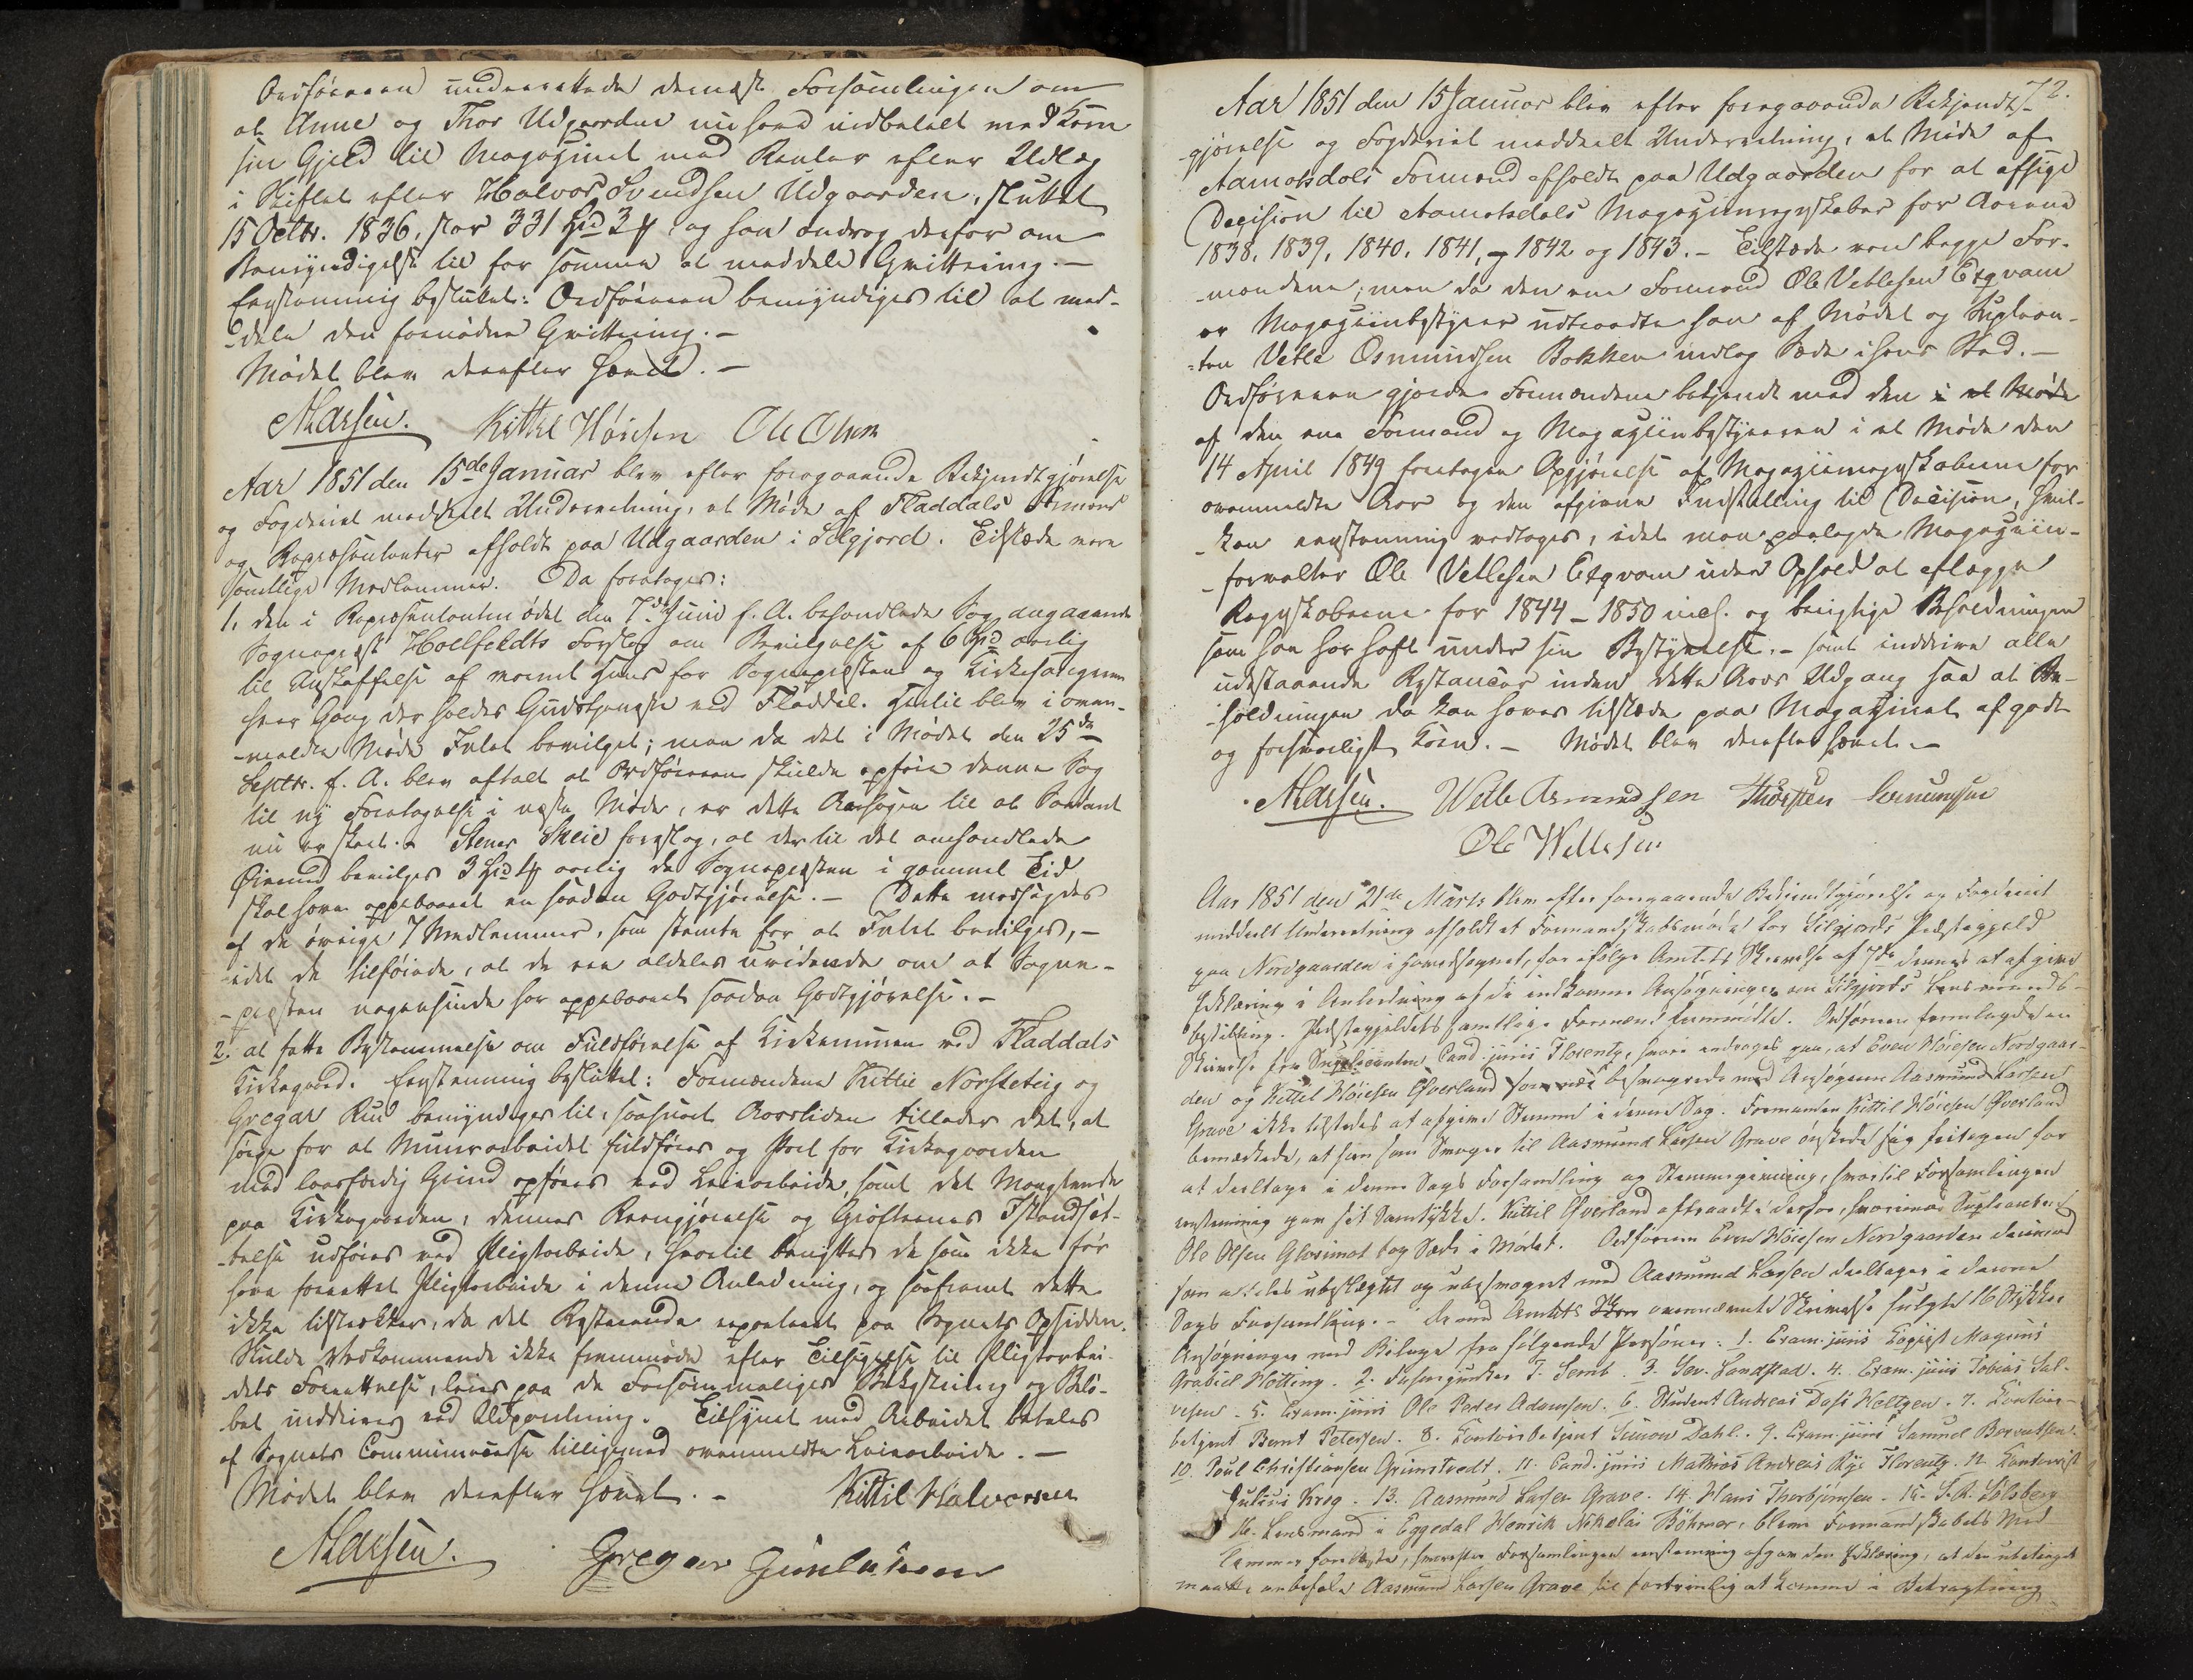 Ordføreren underrettede dernæst Forsamlingen om
at Anne og Thor Udgaarden nu havd indbetalt med Korn
sin Gjeld til Magazinet med Renter efter Udlæg
i Skiftet efter Halvor Svendsen Udgaarden, sluttet
15 Octbr. 1836, stor 331 og han androg derfor om
Bemyndigelse til for samme at meddele Qvittering.-
Eenstemmig besluttet: Ordføreren bemyndiges til at med-
-dele den fornødne Qvittering.-
Mødet blev derefter hævet.-
Aarsen. Kittil Høiesen Ole Olsen
Aar 1851 den 15de Januar blev efter foregaaende Bekjendtgjørelse
og Fogderiet meddeelt Underretning, et Møde af Fladdals Formænd
og Repræsentanter afholdt paa Udgaarden i Silgjord. Tilstæde vare
samtlige Medlemmer. Da foretoges:
1. den i Repræsentantmødet den 7de Juni f. A. behandlede Sag angaaende
Sognepræst Hollfeldts Forslag om Bevilgelse af 6 aarlig
til Anskaffelse af varmt Huus for Sognepræsten og Kirkesangeren
hver Gang der holdes Gudstjeneste ved Fladdal. Hertil blev i oven-
-meldte Møde Intet bevilget; men da det i Mødet den 25de
Septbr. f. A. blev aftalt at Ordføreren skulde opføre denne Sag
til ny Foretagelse i næste Møde, er dette Aarsagen til at Saadant
nu er skeet. Stener Skeie foreslog, at der til det omhandlede
Øiemed bevilges 3 aarlig da Sognepræsten i gammel Tid
skal have oppebaaret en saadan Godtgjørelse.- Dette modsagdes
af de øvrige 7 Medlemmer, som stemte for at Intet bevilges,-
-idet de tilføiede, at de ere aldeles uvidende om at Sogne-
-præsten nogensinde har oppebaaret saadan Godtgjørelse.-
2. at fatte Bestemmelse om Fuldførelse af Kirkemuren ved Fladdals
Kirkegaard. Eenstemmig besluttet: Formændene Kittil Norsteteig og
Gregar Rud bemyndiges til, saasnart Aarstiden tillader det, at
sørge for at Muurarbeidet fuldføres og Port for Kirkegaarden
med lovfærdig Grind opføres ved Leiearbeide, samt det Manglende
paa Kirkegaarden, dennes Reengjørelse og Grøfternes Istandsæt-
-telse udføres ved Pligtarbeide, hvortil benyttes de som ikke før
have forrettet Pligtarbeide i denne Anledning, og saafremt dette
ikke tilstrækker, da det Resterende reparteret paa Sognets Opsiddere.
Skulde Vedkommende ikke fremmøde efter Tilsigelse til Pligtarbei-
dets Forrettelse, leies paa de Forsømmeliges Bekostning og Belø-
bet inddrives ved Udpantning. Tilsynet med Arbeidet betales
af Sognets Communecasse tilligemed ovenmeldte Leiearbeide.-
Mødet blev derefter hævet.- Kittil Halvorsen
Aarsen. Gregar Gunleiksen
72.
Aar 1851 den 15 Januar blev efter foregaaende Bekjendt-
-gjørelse og Fogderiet meddeelt Underretning, et Møde af
Aamotsdals Formænd afholdt paa Udgaarden for at afsige
Decision til Aamotsdals Magazinregnskaber for Aarene
1838, 1839, 1840, 1841, 1842 og 1843.- Tilstæde vare begge For-
-mændene; men da den ene Formand Ole Vetlesen Exqvam
er Magaziinbestyrer udtraadte han af Mødet og Suplean-
-ten Vetle Osmundsen Bakken indtog Sæde i hans Sted.-
Ordføreren gjorde Formændene bekjendt med den i et Møde
af den ene Formand og Magaziinbestyreren i et Møde den
14 April 1849 foretagne Opgjørelse af Magaziinregnskaberne for
ovenmeldte Aar og den afgivne Indstilling til Decision, hvil-
-ken eenstemmig vedtoges, idet man paalagde Magaziin-
-forvalter Ole Vetlesen Exqvam uden Ophold at aflægge
Regnskaberne for 1844-1850 incl. og berigtige Beholdningen
som han har haft under sin Bestyrelse.- samt inddrive alle
udestaaende Restancer inden dette Aars Udgang saa at Be-
-holdningen da kan haves tilstæde paa Magazinet af godt
og forsvarligt Korn.- Mødet blev derefter hævet.-
Aarsen. Wetle Asmundsen Thorsten
Ole Wetlesen
Aar 1851 den 21de Marts blev efter foregaaende Bekjendtgjørelse og Fogderiet
meddeelt Underretning afholdt et Formandskabsmøde for Silgjords Præstegjeld
paa Nordgaarden i Hovedsognet, for ifølge Amtets Skrivelse af 7de dennes at afgive
Erklæring i Anledning af de indkomne Ansøgninger om Silgjords Lensmands-
bestilling. Præstegjeldets samtlige Formænd fremmødte. Ordføreren fremlagde en
Skrivelse fra Supplicanten Cand. juris Florentz, hvori androges paa, at Even Høiesen Nordgaar-
den og Kittil Høiesen Øverland som besvogrede med Ansøgeren Aasmund Larsen
Grave ikke tilstedes at afgive Stemme i denne Sag. Formanden Kittil Høiesen Øverland
bemærkede, at han som Svoger til Aasmund Larsen Grave ønskede sig fritagen for
at deeltage i denne Sags Forhandling og Stemmegivning, hvortil Forsamlingen
eenstemmig gav sit Samtykke. Kittil Øverland aftraadte derfor, hvorimod Supleanten
Ole Olsen Glosimot tog Sæde i Mødet. Ordføreren Even Høiesen Nordgaarden derimod
som aldeles ubeslægtet og ubesvogret med Aasmund Larsen deeltager i denne
Sags Forhandling.- De med Amtets ovennævnte Skrivelse fulgte 16 Stykker
Ansøgninger med Bilage fra følgende Personer: 1. Exam. juris Copiist Magnus
Gabriel Hötting. 2. J. Semb. 3. Sev. Landstad. 4. Exam. juris Tobias Sal-
vesen. 5. Exam. juris Ole Peder Adamsen. 6. Student Andreas Dass Weltzen. 7. Contoir-
betjent Bernt Petersen. 8. Contoirbetjent Simon Dahl. 9. Exam. juris Samuel
10. Poul Christiansen Grimstvedt. 11. Cand. juris Mathias Andreas Rye Florentz. 12. Contorist
Julius Krog. 13. Aasmund Larsen Grave. 14. Hans Thorbjørnsen. 15. S. R. Solsberg
16. Lensmand i Eggedal Henrik Nikolai Böhmer, bleve Formandskabets Med-
lemmer forelæste, hvorefter Forsamlingen eenstemmig afgav den Erklæring, at den ubetinget
maatte anbefale Aasmund Larsen Grave til fortrinlig at komme i Betragtning